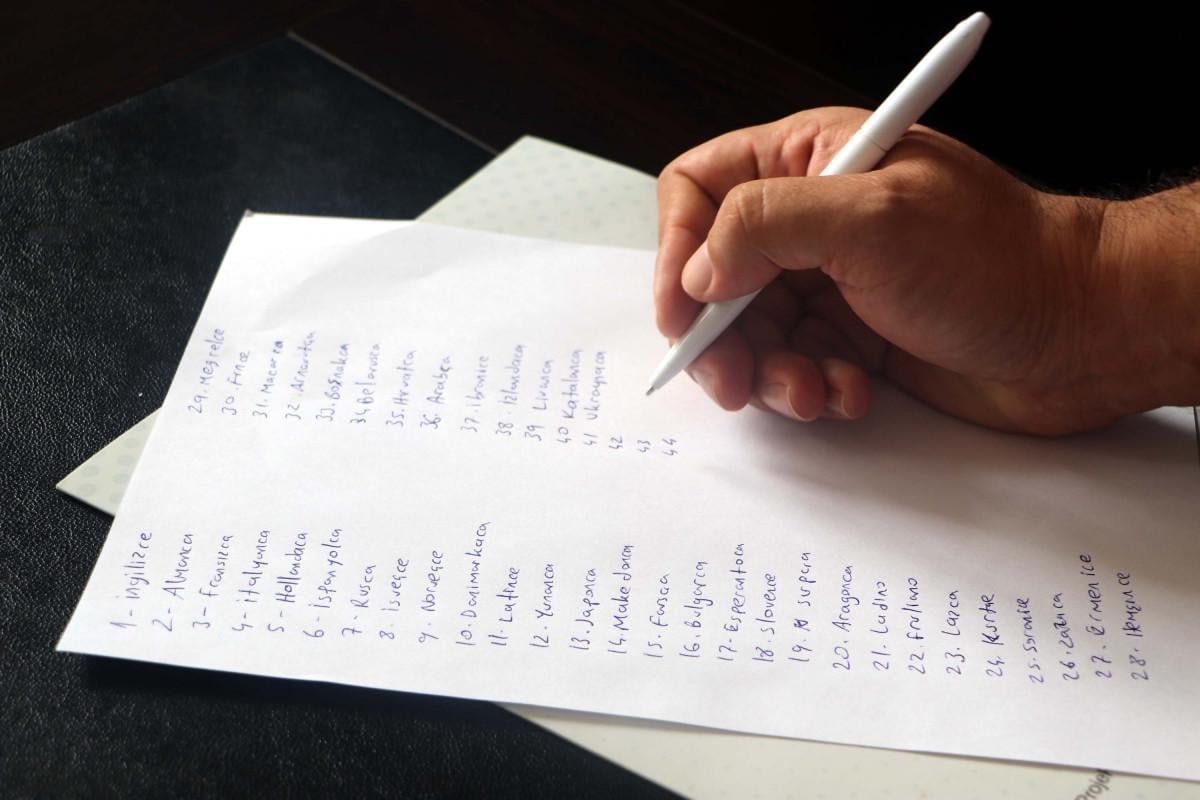 1- ingilizce
2- Almanca
3- Fransızca
4- italyanca
5- Hollandaca
6- ispanyolca
7- Rusca
8. isveççe
9. Norveççe
10. Danimarkaca
11. Latince
12. Yunanca
13. Japonca
14. Makedonca
15. Farsca
16. Bulgarca
17. Esperantoca
18. Slovence
19. Sırpça
20. Aragonca
21. Ladino
22. Friuliano
23. Lazca
24. Kürtçe
25.
26. Zazaca
27. Ermenice
28.
29. Megrelce
30. Fince
31. Macarca
32. Arnavutça
33. Boşnakca
34 Belarusca
35. Hırvatca
36. Arabça
37. ibranice
38. Izlandaca
39 Livanca
40 Katalanca
41 Ukraynaca
42
43
44
Projer